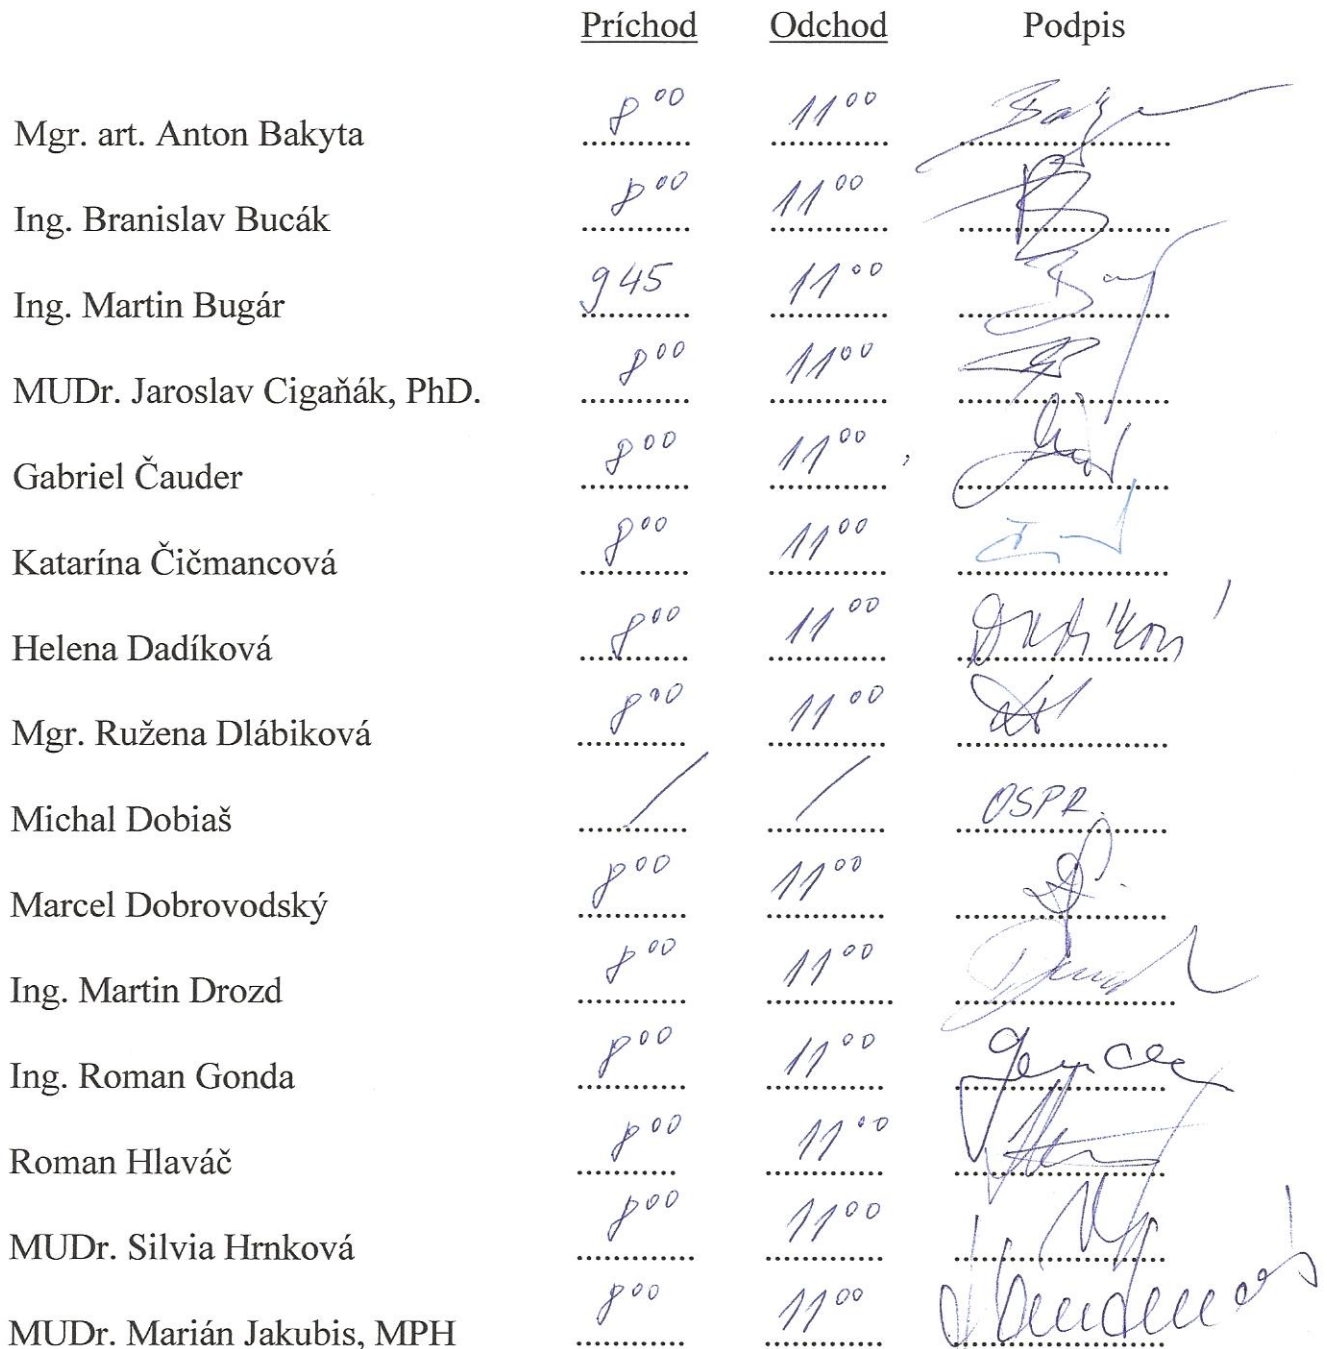 Príchod Odchod Podpis
Mgr. art. Anton Bakyta 8⁰⁰ 11⁰⁰
Ing. Branislav Bucák 8⁰⁰ 11⁰⁰
Ing. Martin Bugár 945 11⁰⁰
MUDr. Jaroslav Cigaňák, PhD. 8⁰⁰ 11⁰⁰
Gabriel Čauder 8⁰⁰ 11⁰⁰
Katarína Čičmancová 8⁰⁰ 11⁰⁰
Helena Dadíková 8⁰⁰ 11⁰⁰ Dadíková
Mgr. Ružena Dlábiková 8⁰⁰ 11⁰⁰
Michal Dobiaš / / OSPR.
Marcel Dobrovodský 8⁰⁰ 11⁰⁰
Ing. Martin Drozd 8⁰⁰ 11⁰⁰
Ing. Roman Gonda 8⁰⁰ 11⁰⁰
Roman Hlaváč 8⁰⁰ 11⁰⁰
MUDr. Silvia Hrnková 8⁰⁰ 11⁰⁰
MUDr. Marián Jakubis, MPH 8⁰⁰ 11⁰⁰